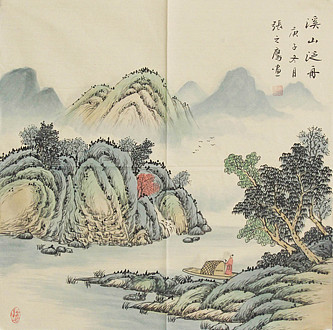 溪山泛舟
庚子冬月
張之
畫